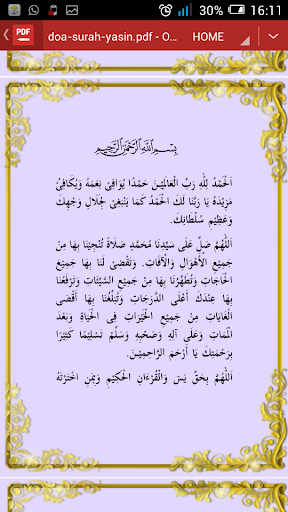 30% 16:11
PDF doa-surah-yasin.pdf - O... HOME
بِسْمِ اللَّهِ الرَّحْمَٰنِ الرَّحِيمِ
اَلْحَمْدُ لِلَّهِ رَبِّ الْعَالَمِيْنَ حَمْدًا يُوَافِيْ نِعَمَهُ وَيُكَافِئُ
مَزِيْدَهُ يَا رَبَّنَا لَكَ الْحَمْدُ كَمَا يَنْبَغِيْ لِجَلَالِ وَجْهِكَ
وَعَظِيْمِ سُلْطَانِكَ.
اَللَّهُمَّ صَلِّ عَلَى سَيِّدِنَا مُحَمَّدٍ صَلَاةً تُنْجِيْنَا بِهَا مِنْ
جَمِيْعِ الْأَهْوَالِ وَالْآفَاتِ. وَتَقْضِيْ لَنَا بِهَا جَمِيْعَ
الْحَاجَاتِ وَتُطَهِّرُنَا بِهَا مِنْ جَمِيْعِ السَّيِّئَاتِ وَتَرْفَعُنَا
بِهَا عِنْدَكَ أَعْلَى الدَّرَجَاتِ وَتُبَلِّغُنَا بِهَا أَقْصَى
الْغَايَاتِ مِنْ جَمِيْعِ الْخَيْرَاتِ فِي الْحَيَاةِ وَبَعْدَ
الْمَمَاتِ وَعَلَى آلِهِ وَصَحْبِهِ وَسَلِّمْ تَسْلِيْمًا كَثِيْرًا
بِرَحْمَتِكَ يَا أَرْحَمَ الرَّاحِمِيْنَ.
اَللَّهُمَّ بِحَقِّ يَسَ وَالْقُرْءَانِ الْحَكِيْمِ وَبِمَنِ اخْتَرْتَهُ